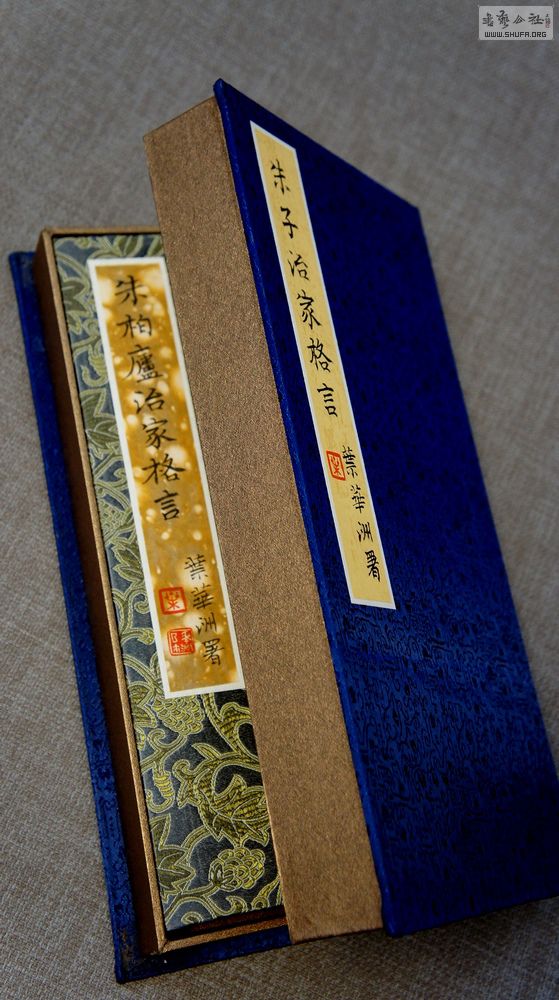 書藝公社
WWW.SHUFA.ORG
朱子治家格言
葉華洲署
朱柏廬治家格言
葉華洲署